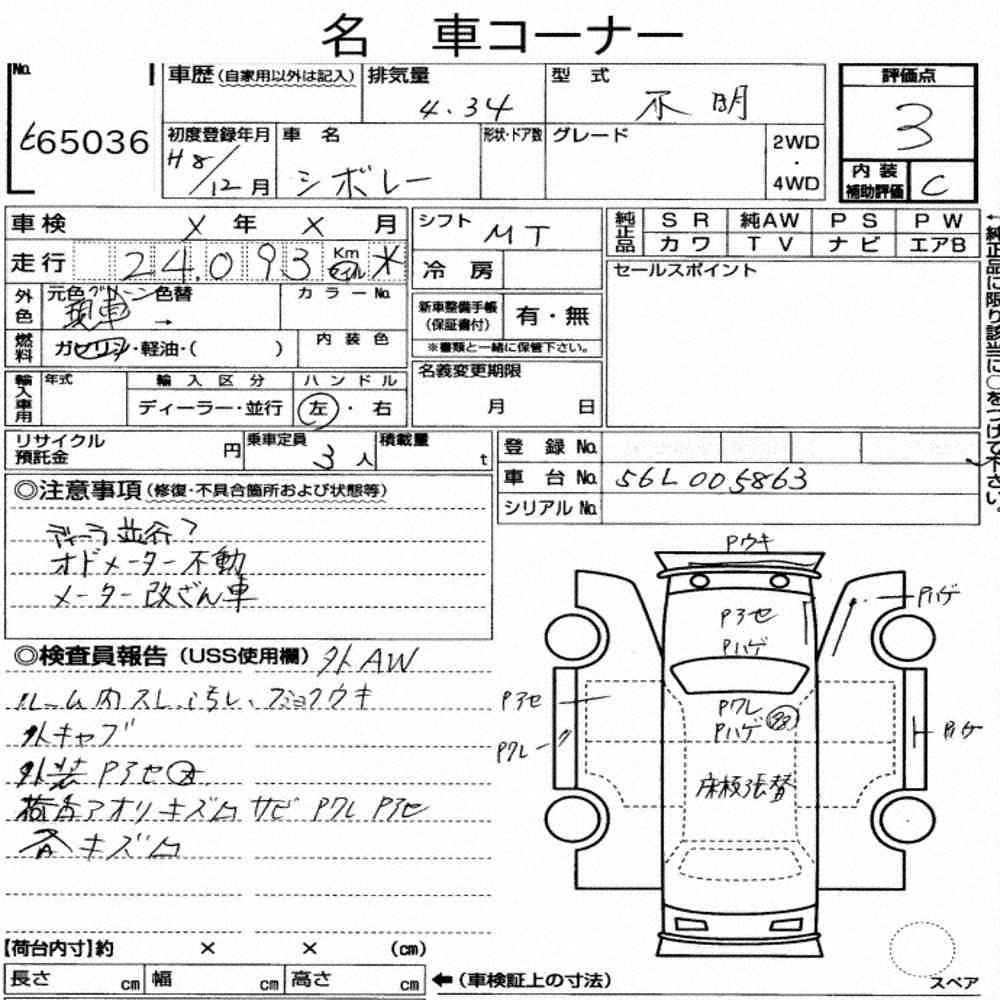 名 車コーナー
No. 65036
車歴(自家用以外は記入) 排気量 4.34 型式 不明
評価点 3
初度登録年月 H8/12月 車名 シボレー 形状・ドア数 グレード 2WD・4WD
内装補助評価 C
車検 X 年 X 月 シフト MT
走行 24,093 Km マイル *
冷房
純正品 SR 純AW PS PW
カワ TV ナビ エアB
セールスポイント
外色 元色 グリーン 色替 → カラーNo.
新車整備手帳(保証書付) 有・無
※書類と一緒に保管下さい。
燃料 ガソリン・軽油・( ) 内装色
輸入車用 年式 輸入区分 ハンドル
ディーラー・並行 左・右
名義変更期限
月 日
←純正品に限り該当に○をつけて下さい。
リサイクル預託金 円 乗車定員 3人 積載量 t
登録No.
車台No. 56L005863
シリアルNo.
◎注意事項(修復・不具合箇所および状態等)
ディーラ並行?
オドメーター不動
メーター改ざん車
◎検査員報告(USS使用欄) 外AW
ルーム内スレ、汚レ、
外キャブ
外装Pアセ大
荷台アオリキズ凹サビPワレPアセ
キズ凹
Pウキ
Pアセ
Pハゲ
Pハゲ
Pアセ
Pワレ
Pハゲ
Pワレ
Pハゲ
床板張替
【荷台内寸】約 × × (cm)
長さ cm 幅 cm 高さ cm ←(車検証上の寸法)
スペア